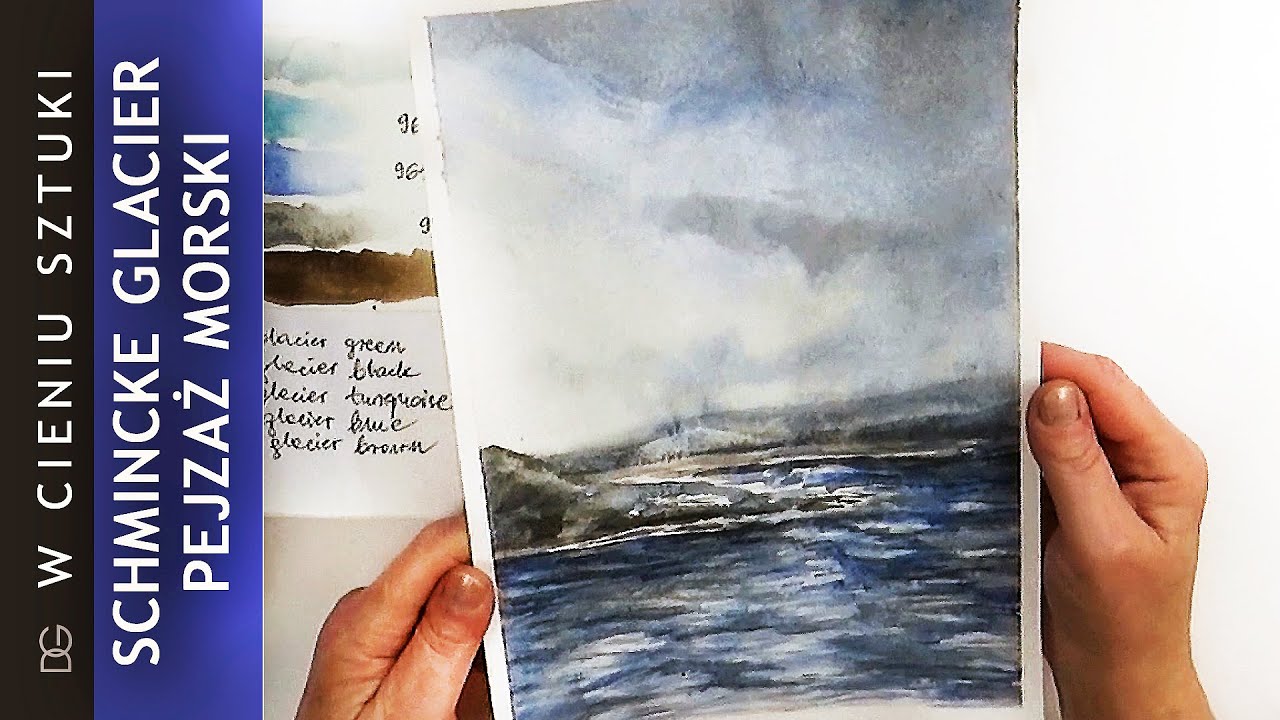 DG W CIENIU SZTUKI
SCHMINCKE GLACIER
PEJZAŻ MORSKI
96
96
9
glacier green
glacier black
glacier turquoise
glacier blue
glacier brown